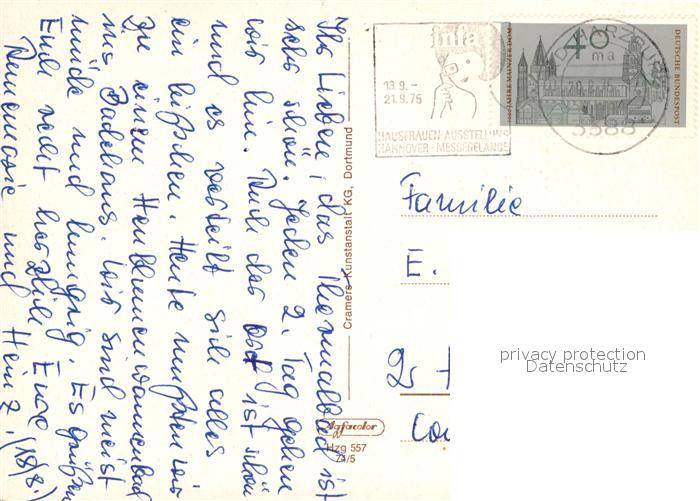 Ihr Lieben, das Thermalbad ist
sehr schön. Jeden 2. Tag gehen
wir hin. Auch der Ort ist schön
und es verteilt sich alles
ein bißchen. Heute mußten wir
zu einem Wannenbad
ins Badehaus. Wir sind meist
müde und hungrig. Es grüßen
Euch recht herzlich Eure
Annemosie und Heinz. (18/8.)
Cramers Kunstanstalt KG, Dortmund
Agfacolor
Hzg 557
74/5
infa
13.9. –
21.9.75
HAUSFRAUEN-AUSSTELLUNG
HANNOVER - MESSEGELÄNDE
BAD HARZBURG
ma
3388
40
1000 JAHRE MAINZER DOM
DEUTSCHE BUNDESPOST
Familie
E.
privacy protection
Datenschutz